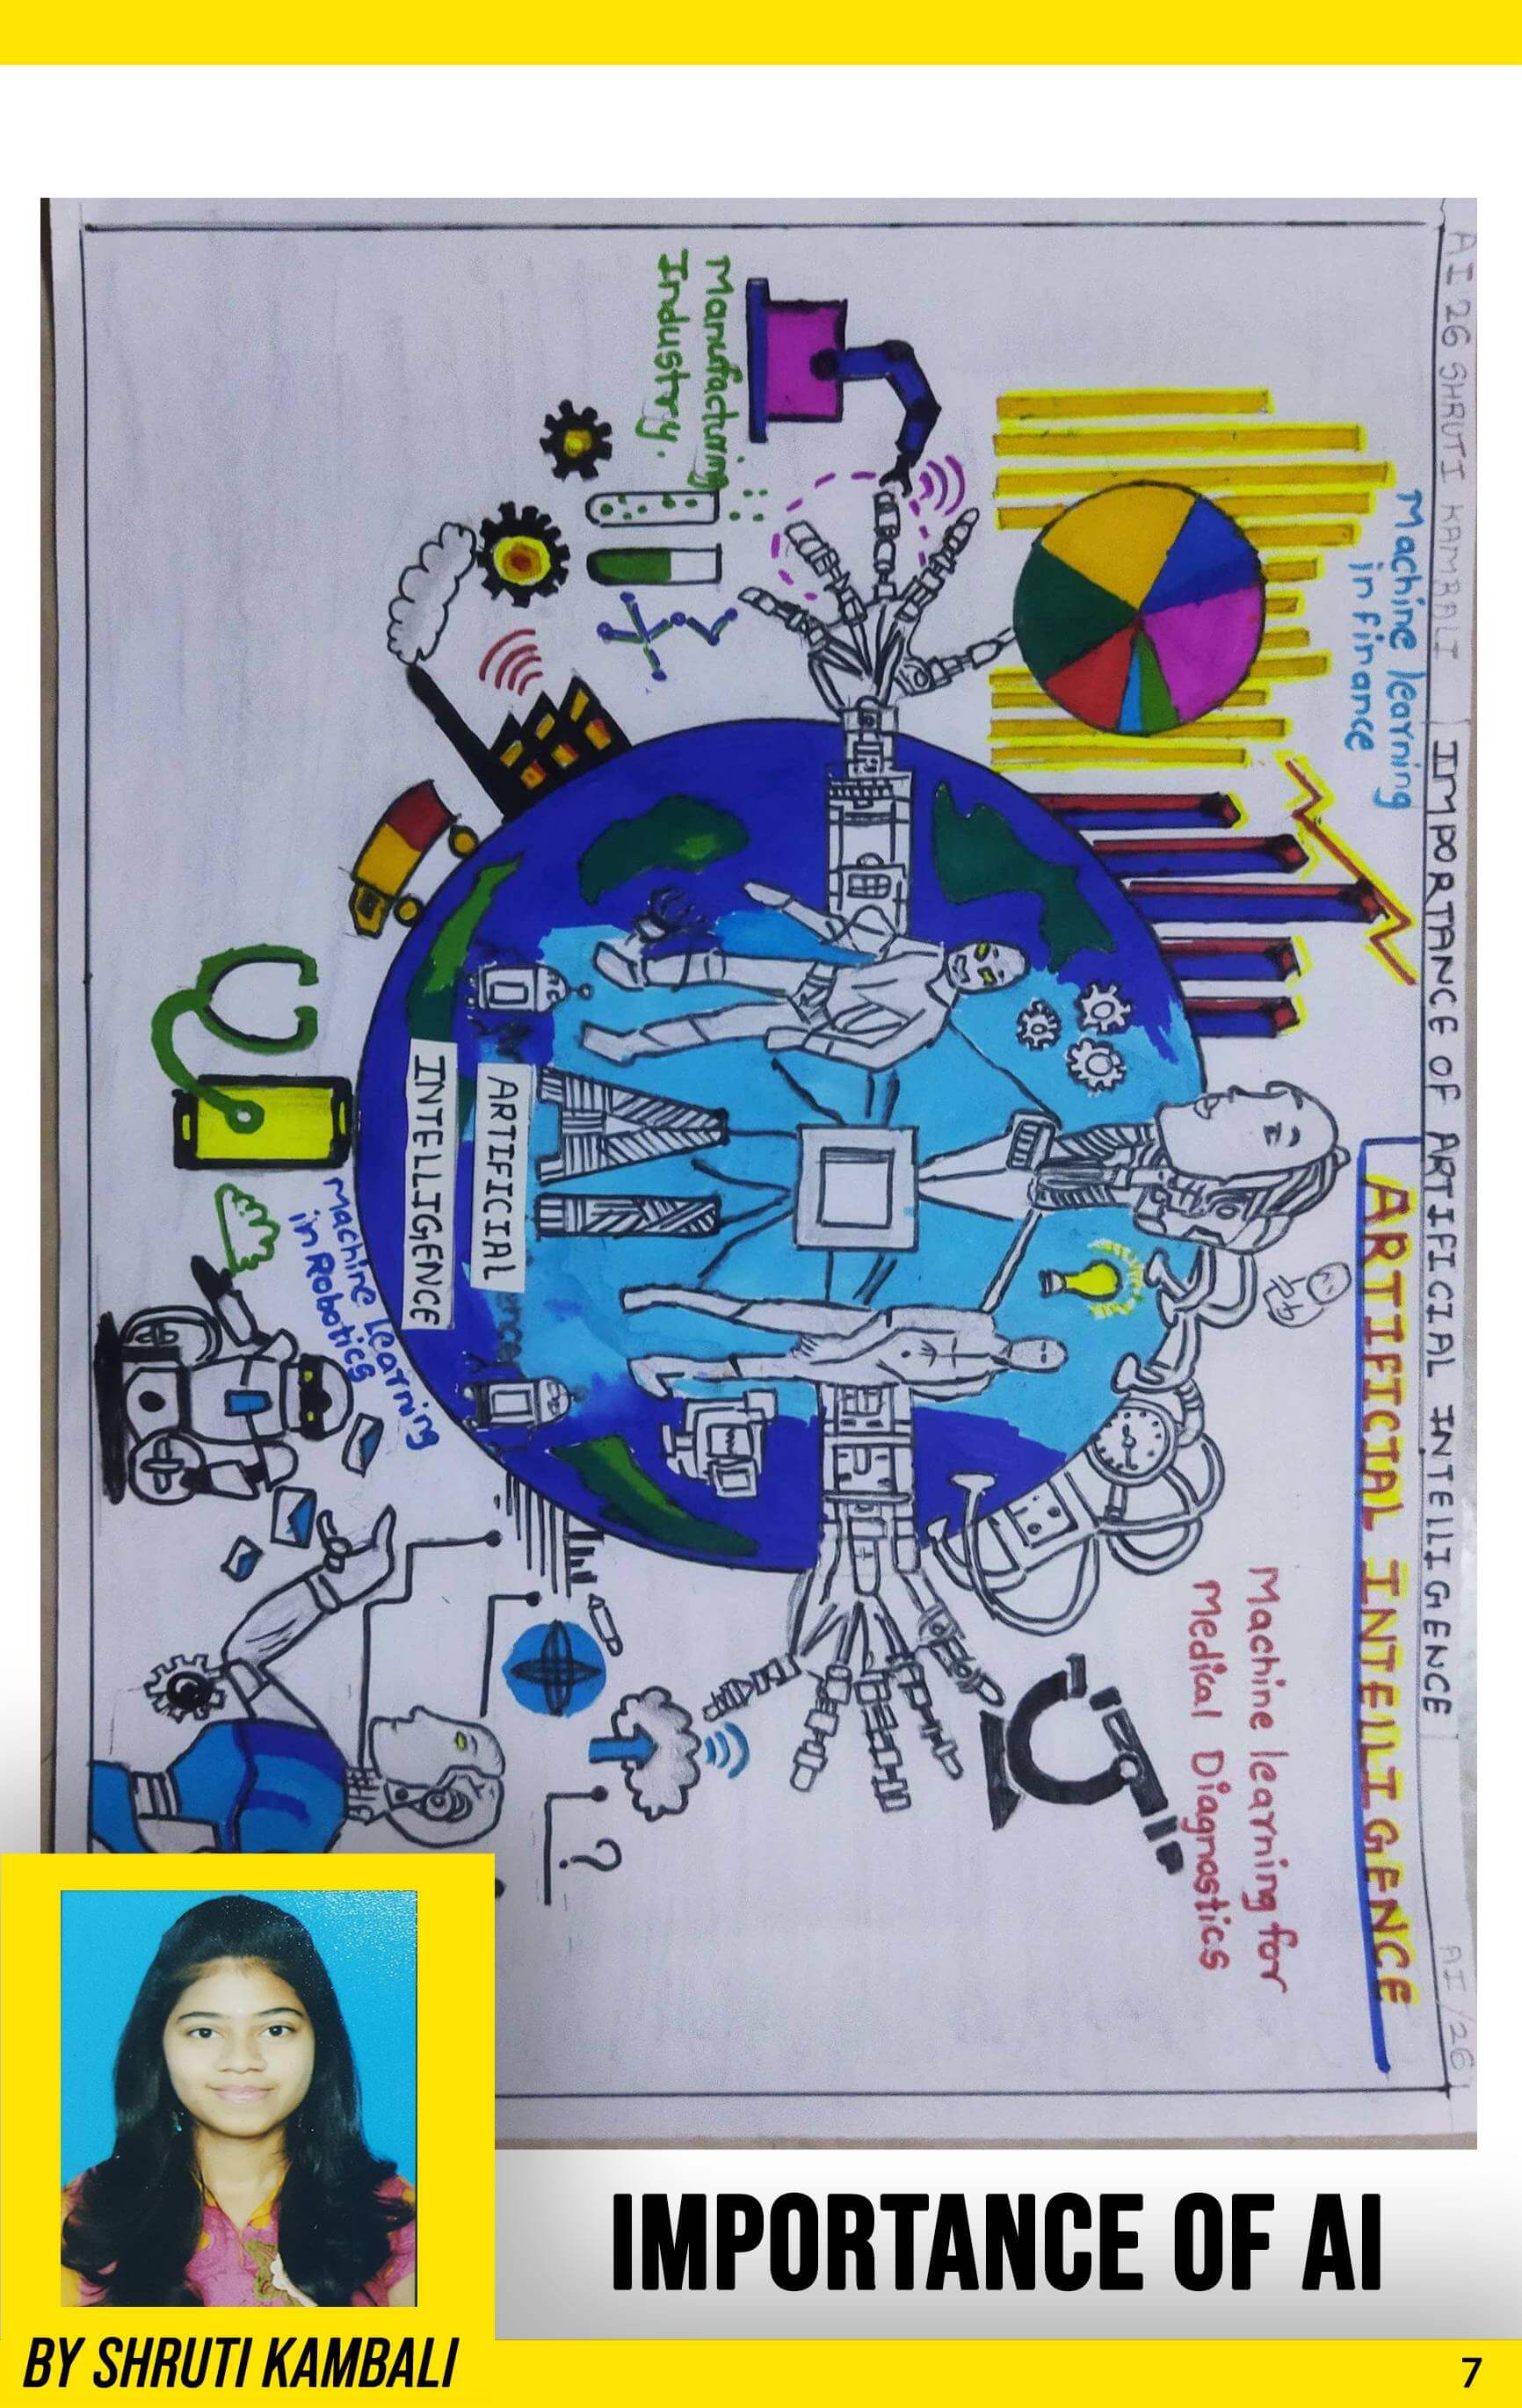 AI 26 SHRUTI KAMBALI
IMPORTANCE OF ARTIFICIAL INTEllIGENCE
AI/26
ARTIFICIAL INTELLIGENCE
Machine learning
in finance
Machine learning for
Medical Diagnostics
Manufacturing
Industry.
AI
ARTIFICIAL
INTELLIGENCE
Machine Learning
in Robotics
?
IMPORTANCE OF AI
BY SHRUTI KAMBALI
7